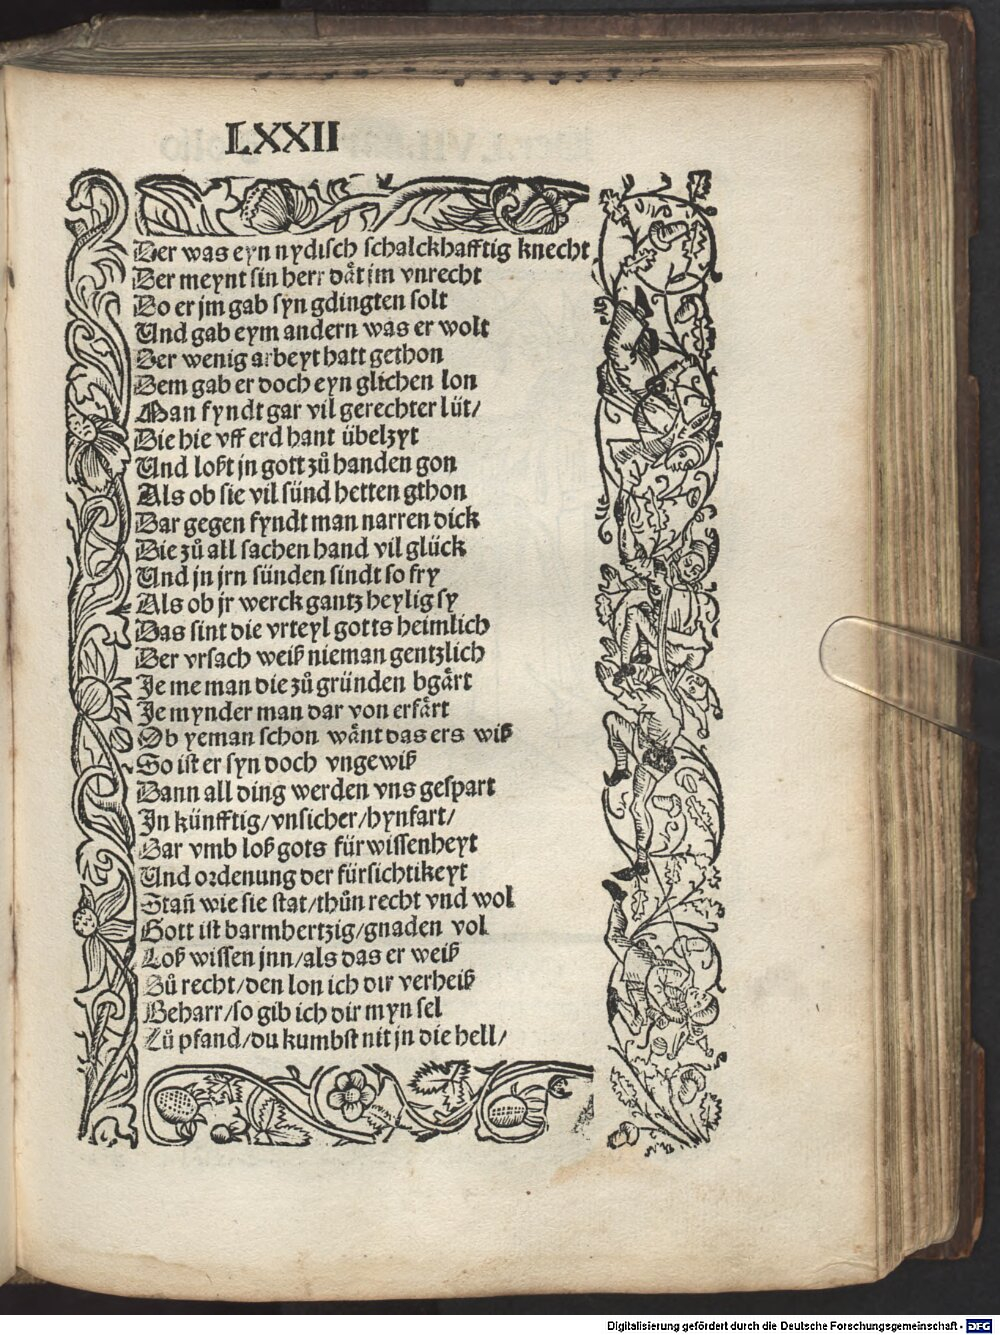 LXXII
Der was eyn nydisch schalckhafftig knecht
Der meynt sin herr dåt jm vnrecht
Do er jm gab syn gdingten solt
Und gab eym andern was er wolt
Der wenig arbeyt hatt gethon
Dem gab er doch eyn glichen lon
Man fyndt gar vil gerechter lüt/
Die hie vff erd hant übelzyt
Und loßt jn gott zů handen gon
Als ob sie vil sünd hetten gthon
Dar gegen fyndt man narren dick
Die zů all sachen hand vil glück
Und jn jrn sünden sindt so fry
Als ob jr werck gantz heylig sy
Das sint die vrteyl gotts heimlich
Der vrsach weiß nieman gentzlich
Je me man die zů gründen bgårt
Je mynder man dar von erfårt
Ob yeman schon wånt das ers wiß
So ist er syn doch vngewiß
Dann all ding werden vns gespart
In künfftig/vnsicher/hynfart/
Dar vmb loß gots fürwissenheyt
Und ordenung der fürsichtikeyt
Stan̄ wie sie stat/thůn recht vnd wol
Gott ist barmhertzig/gnaden vol
Loß wissen jnn/als das er weiß
Dů recht/den lon ich dir verheiß
Beharr/so gib ich dir myn sel
Zů pfand/du kumbst nit jn die hell/
Digitalisierung gefördert durch die Deutsche Forschungsgemeinschaft - DFG